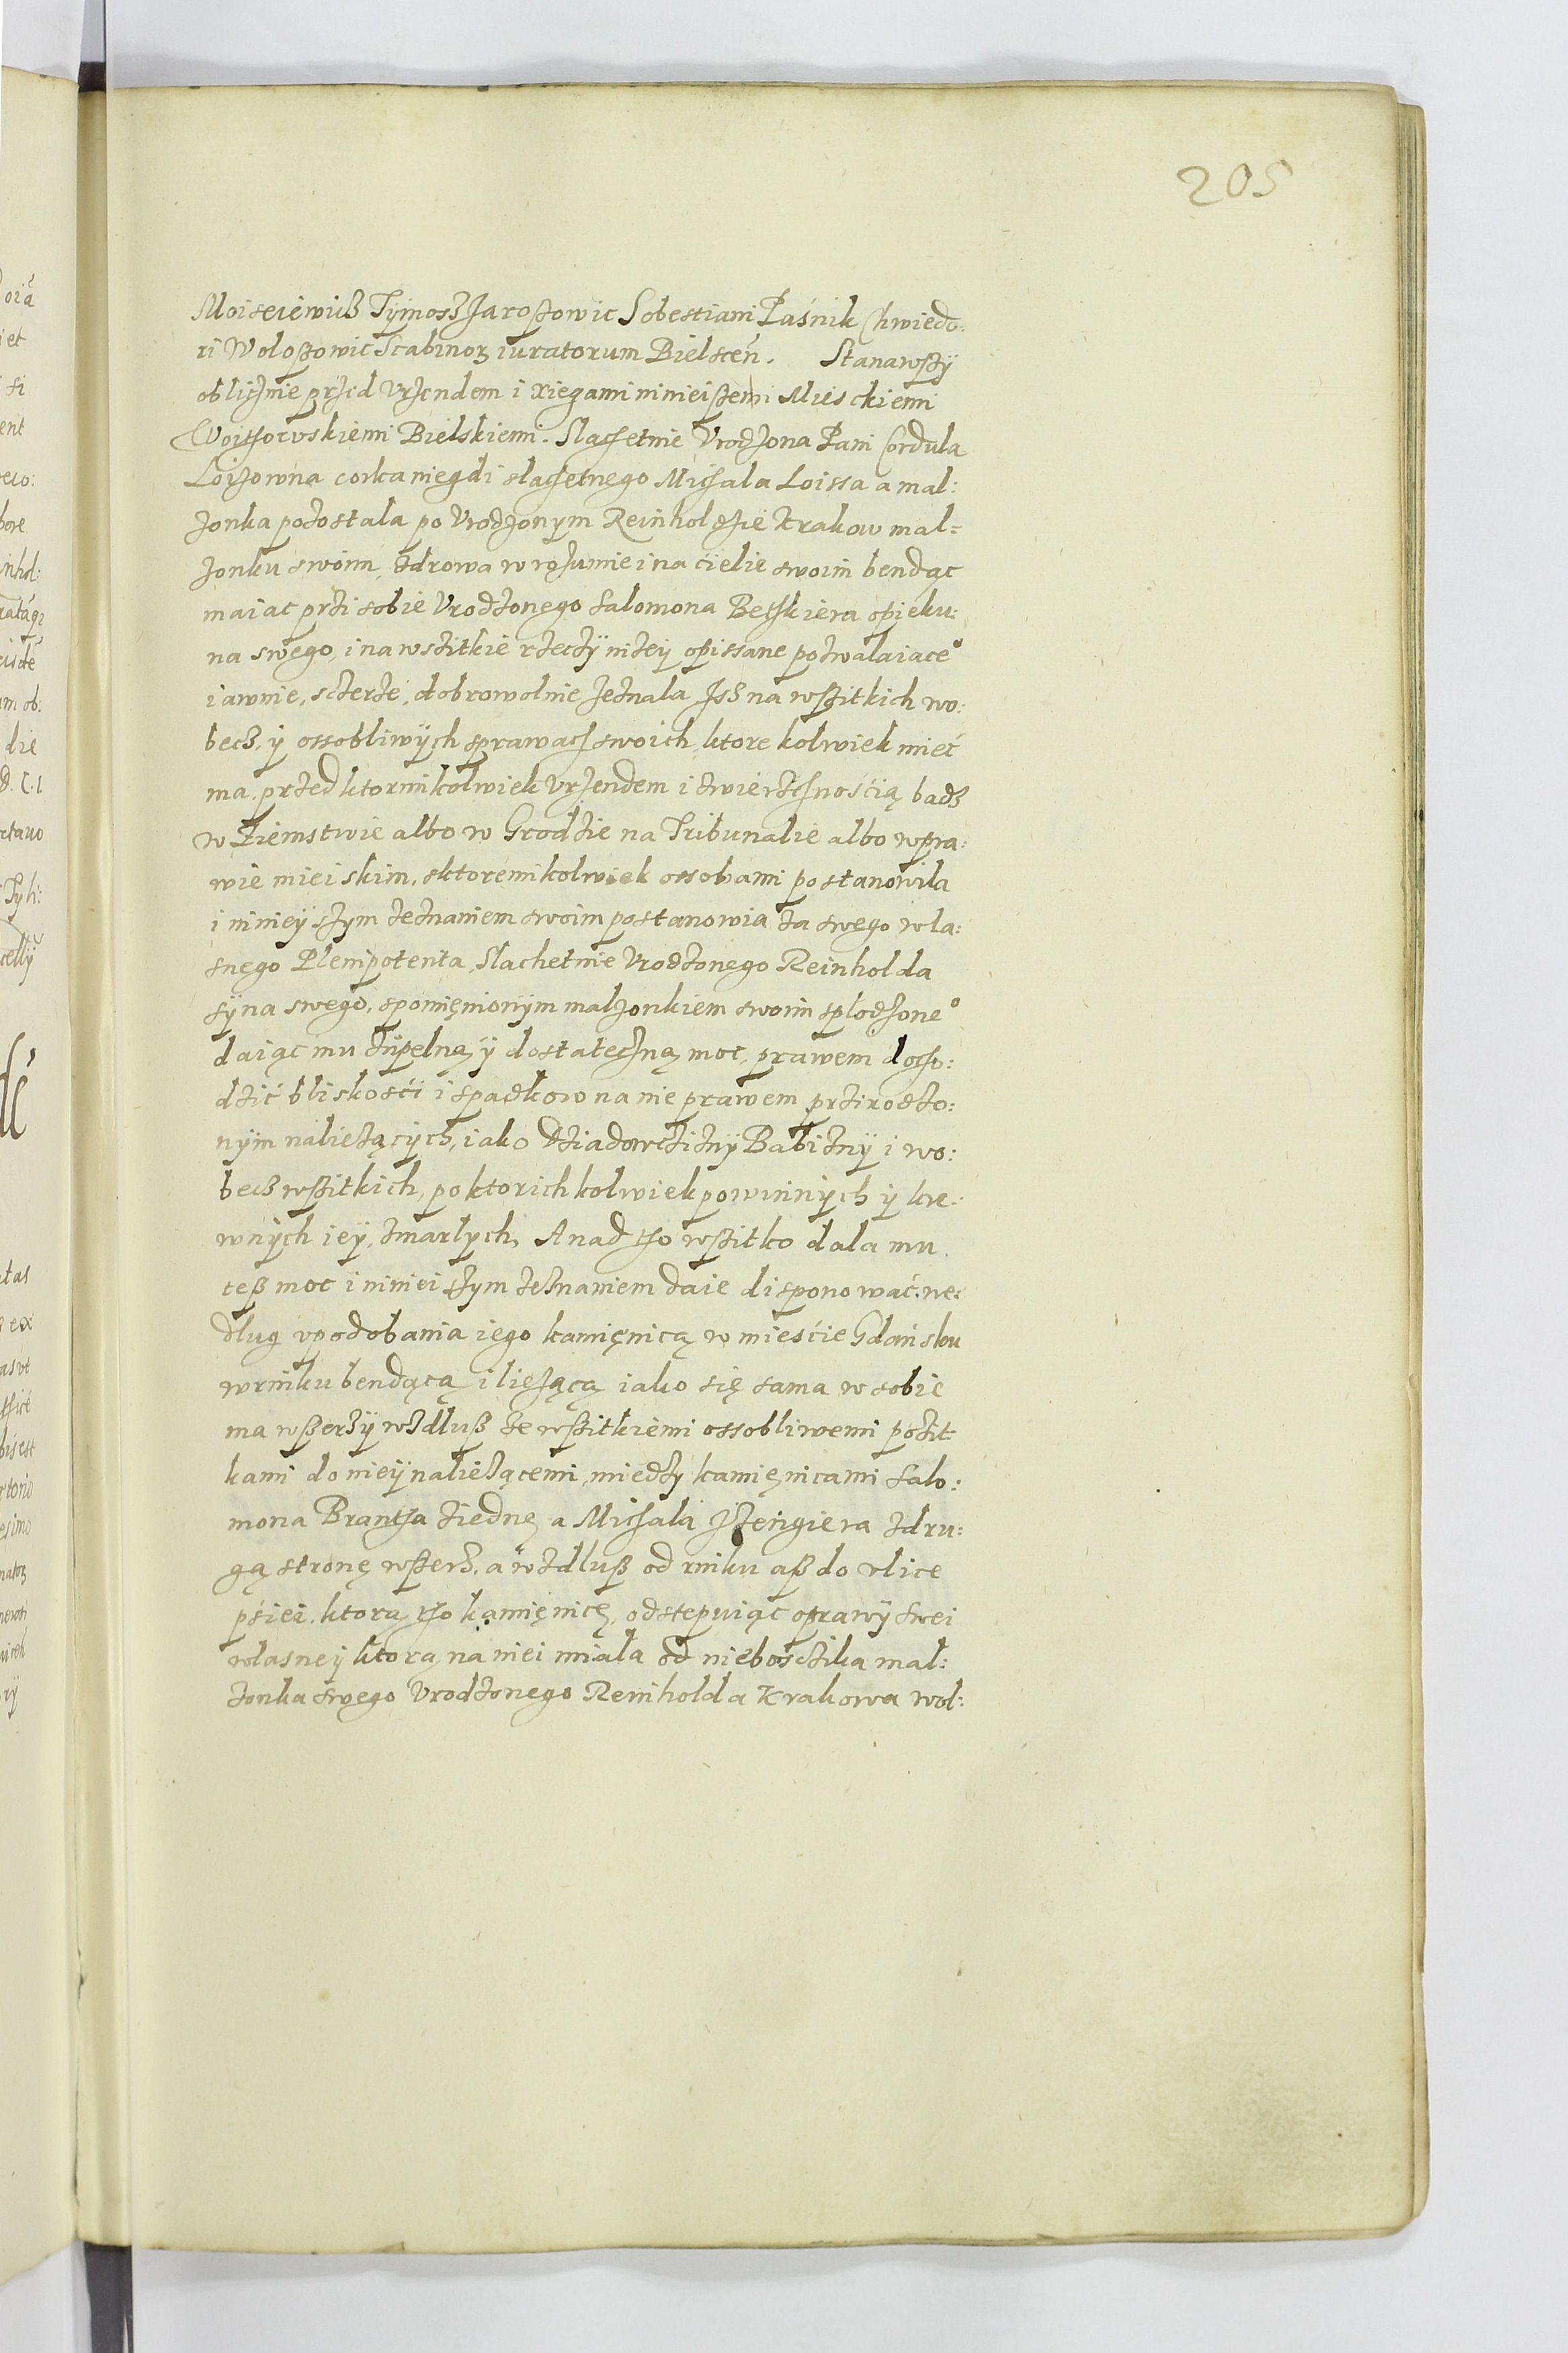 205
Moiseiewicz Tÿmosz Jaroszowic Sobestiani Paśnik Chwiedo:
ri Woloszowic Scabinoꝝ iuratorum Bielscen̄. Stanawszÿ
obliznie przed Vrzendem i xiegami ninieiszemi Mieisckiemi
Woithowskiemi Bielskiemi. Slachetnie Vrodzona Pani Cordula
Loizowna corka niegdi slachetnego Michala Loissa a mal:
zonka pozostala po Vrodzonÿm Reinholdzie Krakow mal=
zonku swoim, zdrowa w rozumie i na ćielie swoim bendąc
maiac przi sobie Vrodzonego Salomona Beszkiera opieku:
na swego, i na wszitkie rzeczÿ nizeÿ opissane pozwalaiace°
iawnie, sczerze, dobrowolnie zeznala Jsz na wszitkich wo:
becz, ÿ ossobliwÿch sprawach swoich, ktore kolwiek mieć
ma, przed ktorimkolwiek vrzendem i zwierzchnośćią badz
w Ziemstwie albo w Grodzie na Tribunalie albo w pra:
wie mieiskim, sktoremikolwiek ossobami postanowila
i ninieÿszym zeznaniem swoim postanowia za swego wla:
snego Plenipotenta, Slachetnie Vrodzonego Reinholda
sÿna swego, spomięnionÿm malzonkiem swoim splodzone°
daiąc mu zupelną ÿ dostateczną moc, prawem docho:
dzić bliskosći i spadkow na nie prawem przirodzo:
nÿm nalieząćÿch, iako Dziadowcziznÿ Babiznÿ i wo:
becz wszitkich, po ktorichkolwiek powinnÿch ÿ kre:
wnÿch ieÿ, zmarlÿch, A nad tho wszitko dala mu
tesz moc i ninieiszym zeznaniem daie disponować: we:
dlug vpodobania iego kamięnicą w mieśćie Gdańsku
w rinku bendącą i lieżącą iako się sama w sobie
ma wszerzÿ wzdlusz ze wszitkiemi ossobliwemi pozit
kami do nieÿ naliezącemi, miedzy kamięnicami Salo:
mona Brantha ziednę a Michala Jszengiera zdru:
gą stronę wszerz, a wzdlusz od rinku asz do vlice
pśiei, ktorą tho kamięnicę, odstepuiąc oprawÿ swei
wlasneÿ ktorą na niei miala od niebosczika mal:
zonka swego Vrodzonego Reinholda Krakowa wol: